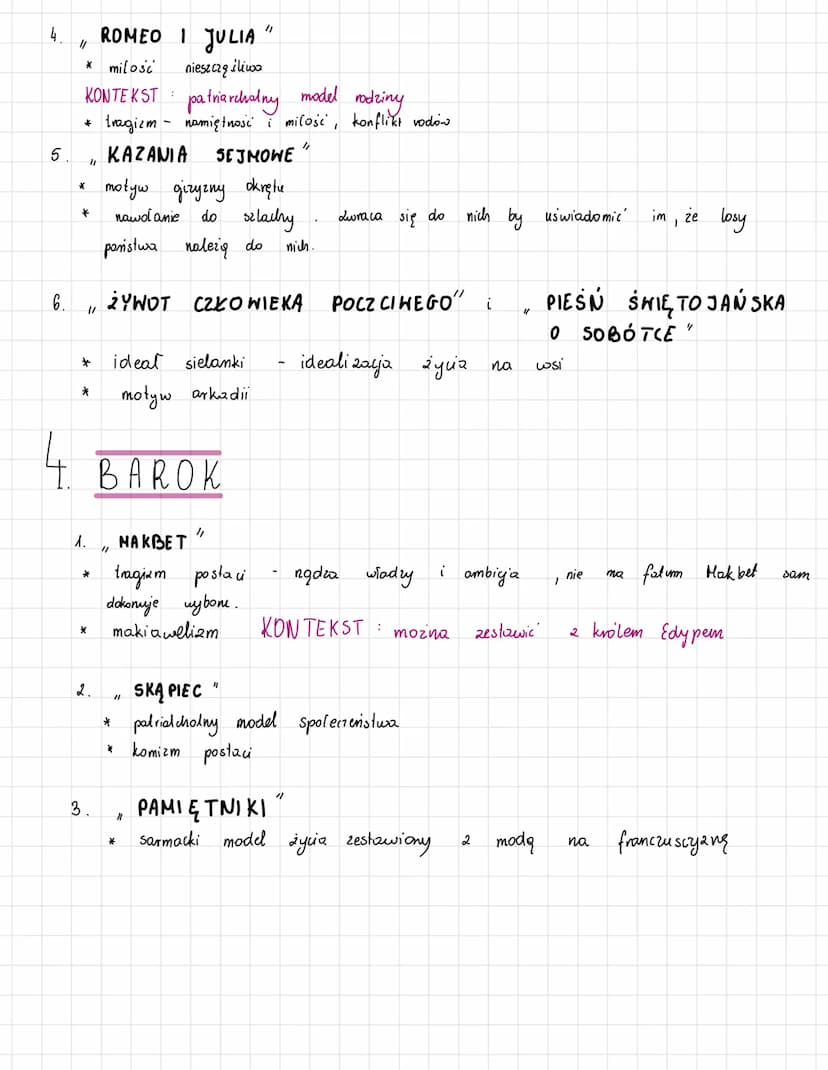 4. „ROMEO I JULIA"
* miłość nieszczęśliwa
KONTEKST : patriarchalny model rodziny
* tragizm - namiętność i miłość, konflikt rodów
5. „KAZANIA SEJMOWE"
* motyw ojczyzny okrętu
* nawołanie do szlachty . zwraca się do nich by uświadomić im, że losy
państwa należą do nich.
6. „ŻYWOT CZŁOWIEKA POCZCIWEGO" i „PIEŚŃ ŚWIĘTOJAŃSKA
O SOBÓTCE"
* ideał sielanki - idealizacja życia na wsi
* motyw arkadii
4. BAROK
1. „MAKBET"
* tragizm postaci - rządza władzy i ambicja , nie ma fatum Makbet sam
dokonuje wyboru.
* makiawelizm KONTEKST : można zestawić z królem Edypem
2. „SKĄPIEC"
* patrialcholny model społeczeństwa
* komizm postaci
3. „PAMIĘTNIKI"
* sarmacki model życia zestawiony z modą na francuszczyznę